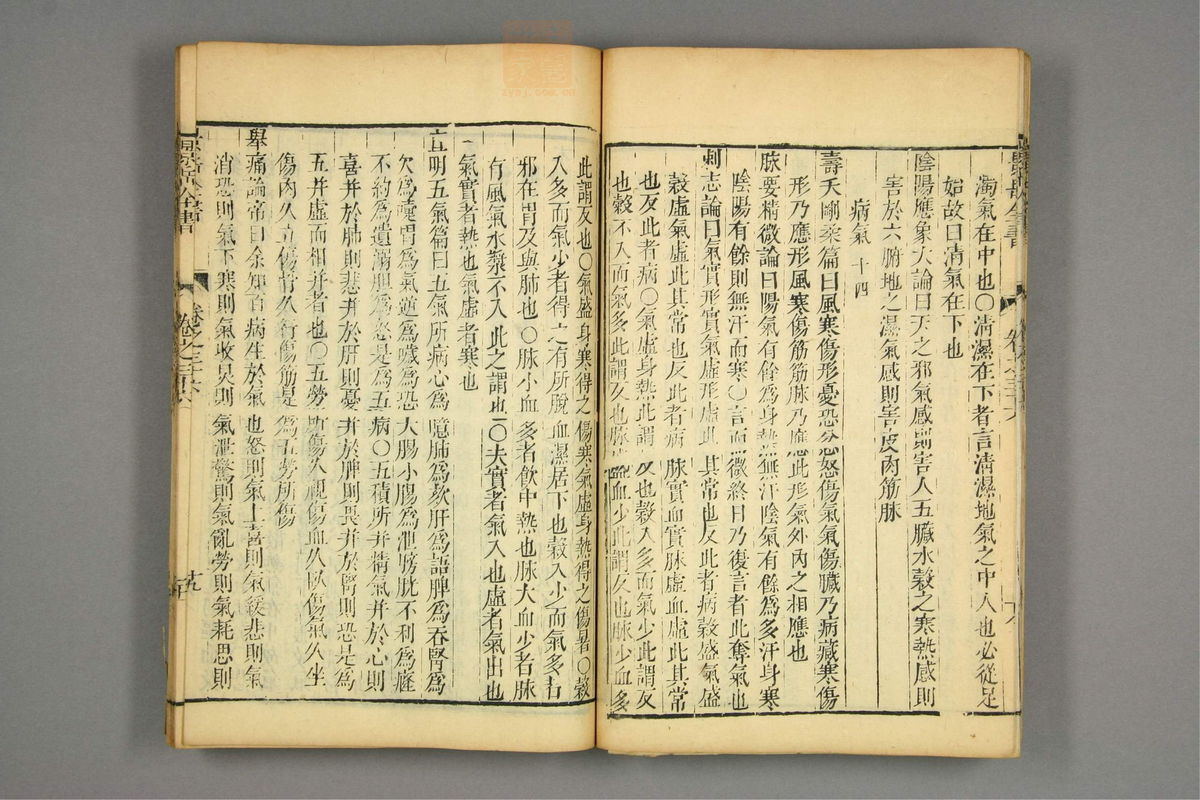 濁氣在中也○清濕在下者言清濕地氣之中人也必從足
始故曰清氣在下也
陰陽應象大論曰天之邪氣感則害人五臟水穀之寒熱感則
害於六腑地之濕氣感則害皮肉筋脉
病氣 十四
壽夭剛柔篇曰風寒傷形憂恐忿怒傷氣氣傷臟乃病藏寒傷
形乃應形風寒傷筋筋脉乃應此形氣外內之相應也
脉要精微論曰陽氣有餘為身熱無汗陰氣有餘為多汗身寒
陰陽有餘則無汗而寒○言而微終日乃復言者此奪氣也
刺志論曰氣實形實氣虛形虛此其常也反此者病穀盛氣盛
穀虛氣虛此其常也反此者病脉實血實脉虛血虛此其常
也反此者病○氣虛身熱此謂反也穀入多而氣少此謂反
也穀不入而氣多此謂反也脉盛血少此謂反也脉少血多
此謂反也○氣盛身寒得之傷寒氣虛身熱得之傷暑○穀
入多而氣少者得之有所脫血濕居下也穀入少而氣多者
邪在胃及與肺也○脉小血多者飲中熱也脉大血少者脉
有風氣水漿不入此之謂也○夫實者氣入也虛者氣出也
氣實者熱也氣虛者寒也
宣明五氣篇曰五氣所病心為噫肺為欬肝為語脾為吞腎為
欠為嚏胃為氣逆為噦為恐大腸小腸為泄膀胱不利為癃
不約為遺溺膽為怒是為五病○五積所并精氣并於心則
喜并於肺則悲并於肝則憂并於脾則畏并於腎則恐是為
五并虛而相并者也○五勞所傷久視傷血久臥傷氣久坐
傷肉久立傷骨久行傷筋是為五勞所傷
舉痛論帝曰余知百病生於氣也怒則氣上喜則氣緩悲則氣
消恐則氣下寒則氣收炅則氣泄驚則氣亂勞則氣耗思則
卷之三十六
十九
zysj.com.cn